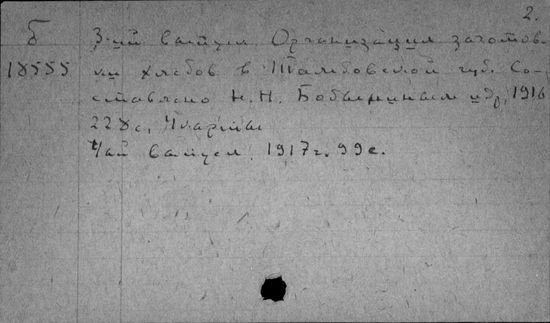 2.
Б 3-ий выпуск Организация заготов-
18555 ки хлебов в Тамбовской губ. Со-
ставлено Н.Н. Бобыниным и др. 1916
228с., 4 карты
4ый выпуск. 1917г. 99с.